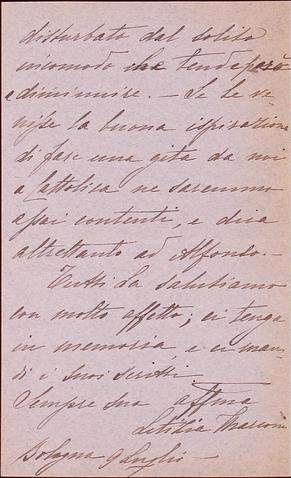 disturbato dal solito
incomodo che tende però
a diminuire. — Se le ve
nisse la buona ispirazione
di fare una gita da noi
a Cattolica ne saremmo
assai contenti, e dica
altrettanto ad Alfonso. —
Tutti La salutiamo
con molto affetto; ci tenga
in memoria, e ci man
di i suoi scritti.
Sempre sua affma
Letizia
Bologna 9 Luglio —